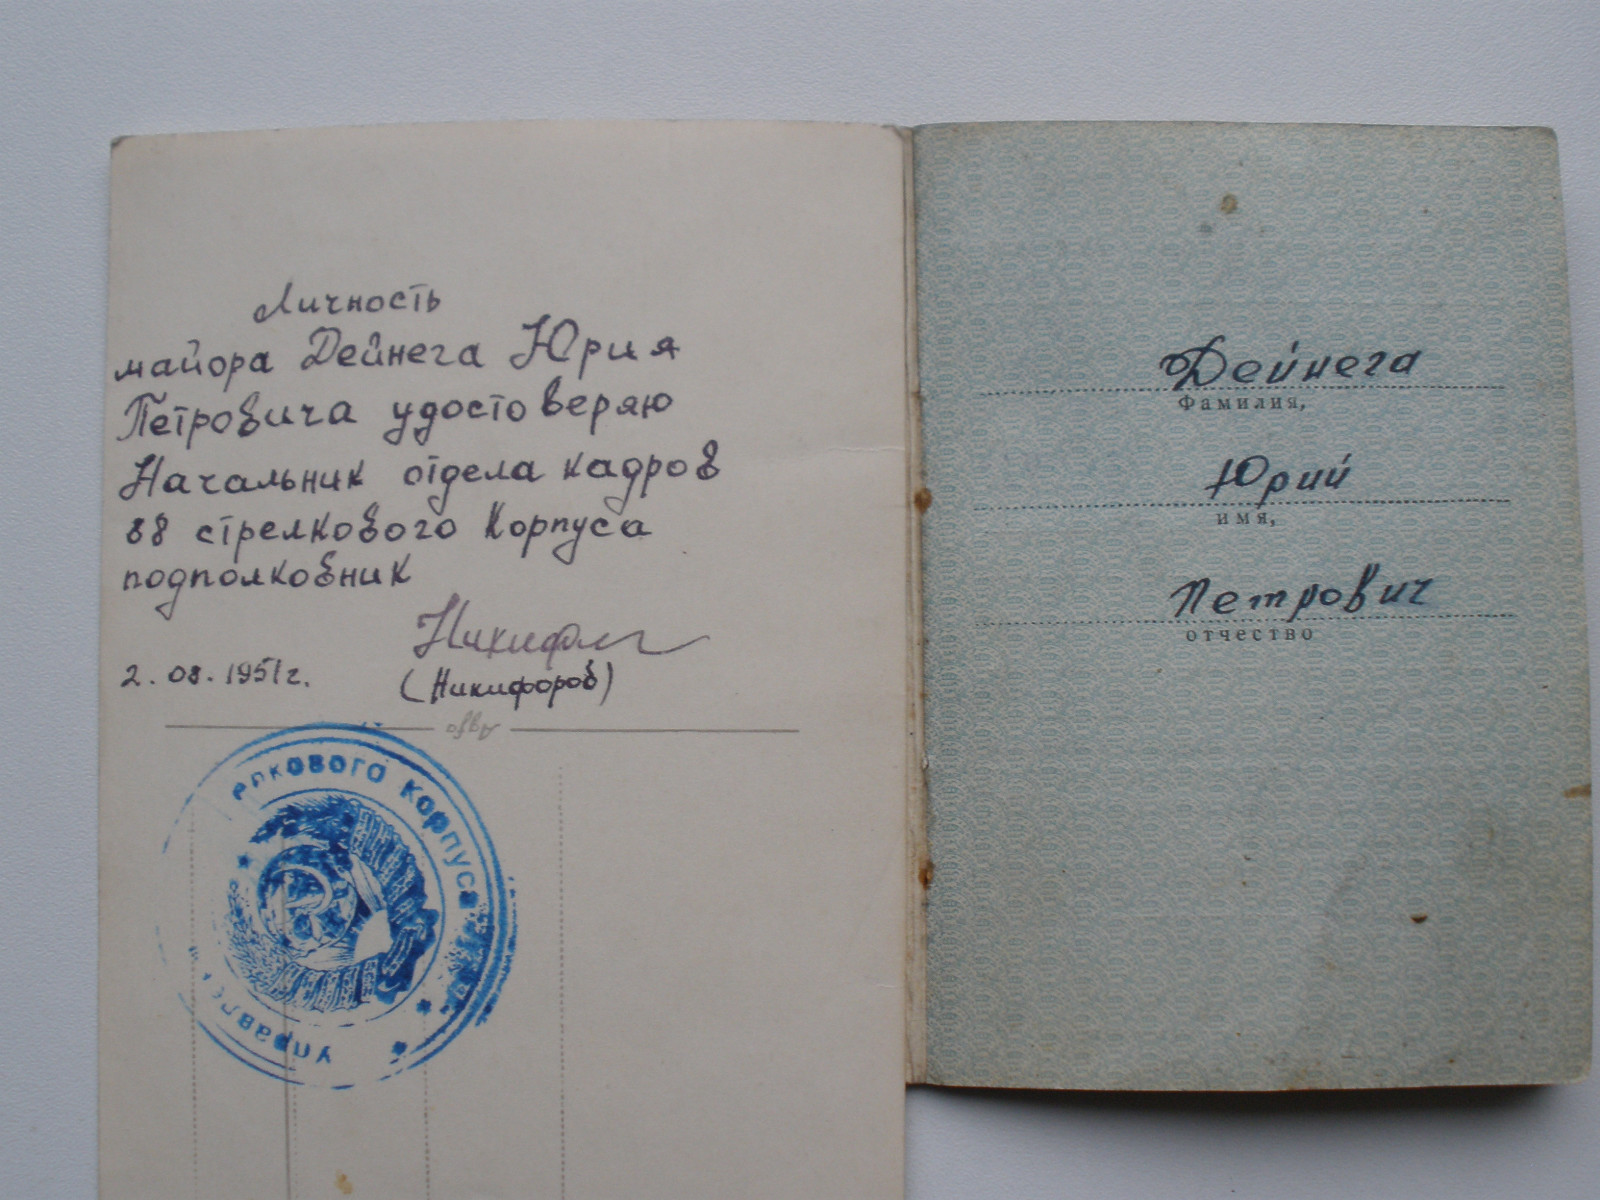 Личность
майора Дейнега Юрия
Петровича удостоверяю
Начальник отдела кадров
88 стрелкового корпуса
подполковник
(Никифоров)
2.08.1951г.
елкового корпуса
Управле
Дейнега
Фамилия,
Юрий
имя,
Петрович
отчество